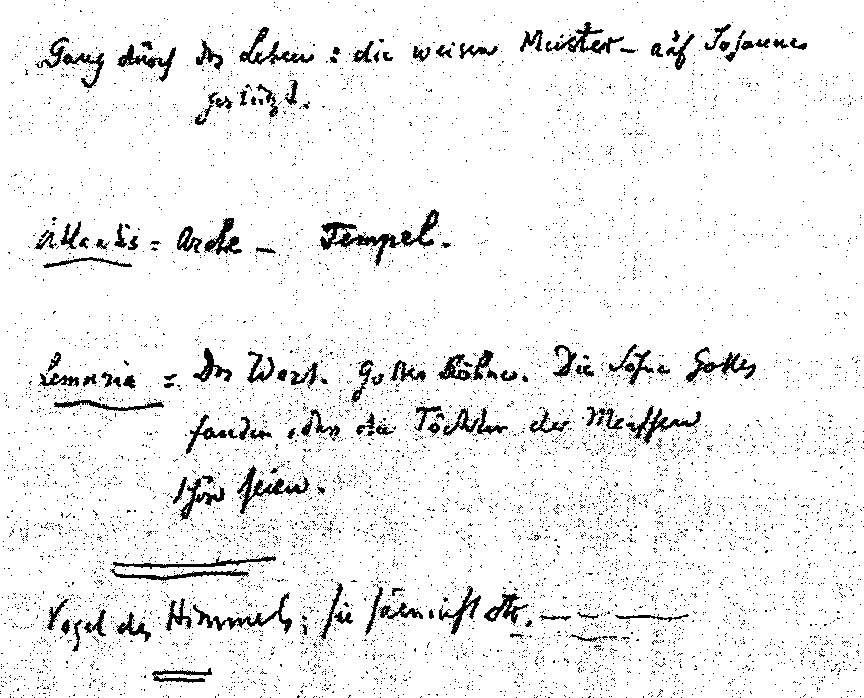 Gang durch das Leben : die weisen Meister – auf Johannes
gestützt.
Atlantis = Arche – Tempel.
Lemuria = Das Wort. Gottes Söhne. Die Söhne Gottes
fanden, dass die Töchter der Menschen
schön seien.
Vögel des Himmels; sie säen nicht etc.